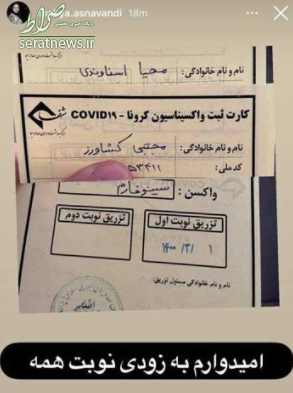 ya.asnavandi 18m
صراط
seratnews.ir
نام و نام خانوادگی: محیا اسناوندی
کارت ثبت واکسیناسیون کرونا - COVID۱۹
نام و نام خانوادگی: مجتبی کشاورز
کد ملی: ۵۳۴۱۱
واکسن: سینوفارم
تزریق نوبت اول
تزریق نوبت دوم
۱۴۰۰/۳/۱
نام و نام خانوادگی مسئول تزریق:
امیدوارم به زودی نوبت همه